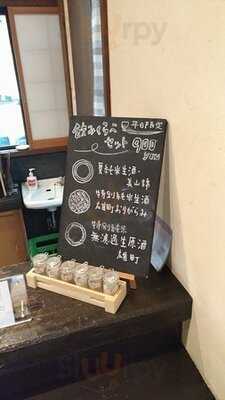 平日限定
飲みくらべ
セット 900
夏純米生酒
美山錦
特別純米生酒
雄町おりがらみ
特別純米
無濾過生原酒
雄町